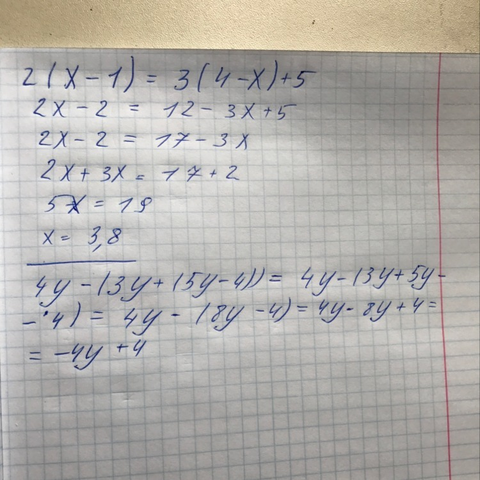 2(x-1) = 3(4-x)+5
2x-2 = 12-3x+5
2x-2 = 17-3x
2x+3x = 17+2
5x = 19
x = 3,8
4y-(3y+(5y-4)) = 4y-(3y+5y-
-4) = 4y-(8y-4) = 4y-8y+4 =
= -4y+4